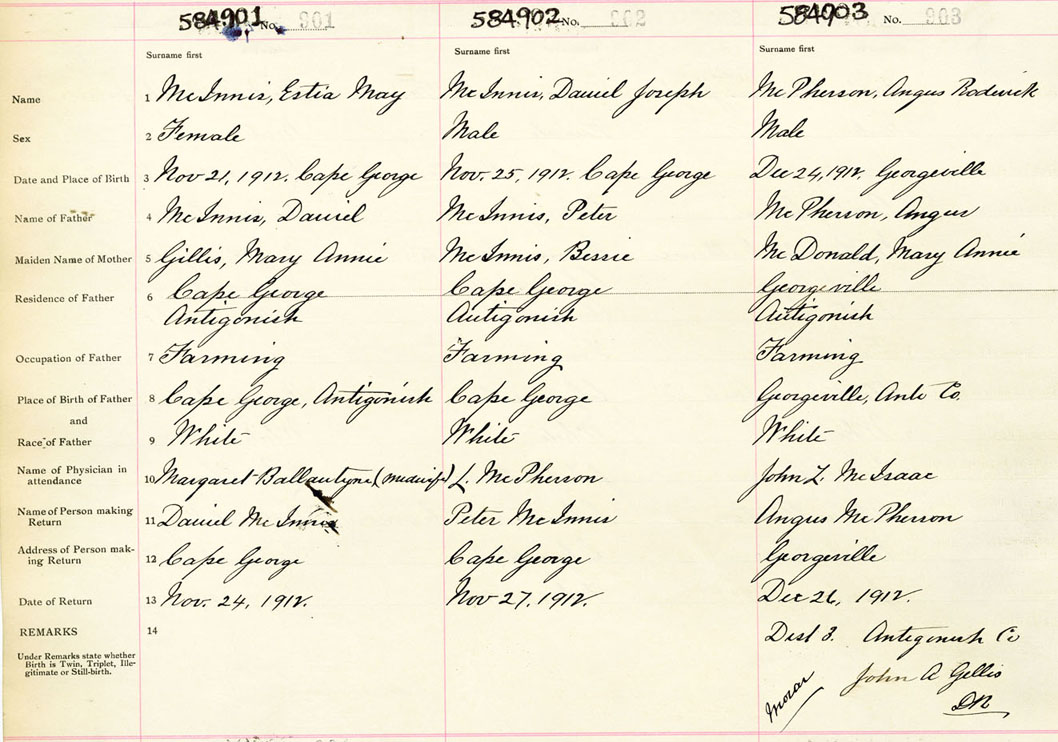 584901 No. 901 584902 No. 902 584903 No. 903
Surname first Surname first Surname first
Name 1 McInnis, Estia May McInnis, Daniel Joseph McPherson, Angus Roderick
Sex 2 Female Male Male
Date and Place of Birth 3 Nov 21, 1912. Cape George Nov. 25, 1912. Cape George Dec 24, 1912. Georgeville
Name of Father 4 McInnis, Daniel McInnis, Peter McPherson, Angus
Maiden Name of Mother 5 Gillis, Mary Annie McInnis, Bessie McDonald, Mary Annie
Residence of Father 6 Cape George Cape George Georgeville
Antigonish Antigonish Antigonish
Occupation of Father 7 Farming Farming Farming
Place of Birth of Father 8 Cape George, Antigonish Cape George Georgeville, Ant. Co.
and
Race of Father 9 White White White
Name of Physician in
attendance 10 Margaret Ballantyne (midwife) L. McPherson John L. McIsaac
Name of Person making
Return 11 Daniel McInnis Peter McInnis Angus McPherson
Address of Person mak-
ing Return 12 Cape George Cape George Georgeville
Date of Return 13 Nov. 24, 1912. Nov 27, 1912. Dec 26, 1912.
REMARKS 14 Dist 3. Antigonish Co
Under Remarks state whether
Birth is Twin, Triplet, Ille-
gitimate or Still-birth.
John A Gillis
DR